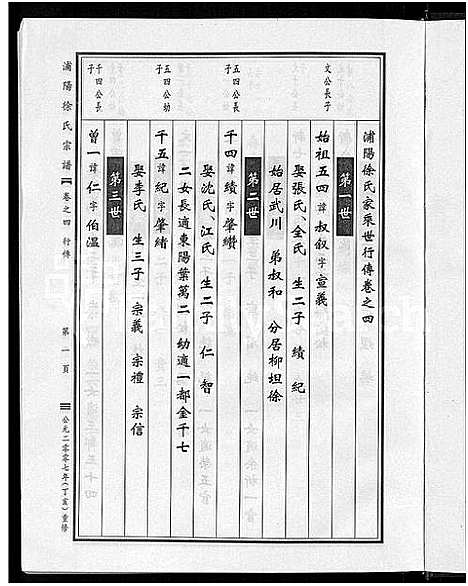 浦陽徐氏家乘世行傳卷之四
第一世
文公長子
始祖五四諱叔叙字宣義
娶張氏、金氏 生二子 績 紀
始居武川 弟叔和 分居柳坦徐
第二世
五四公長子
千四諱績字肇纘
娶沈氏、江氏 生二子 仁 智
二女長適東陽葉萬二 幼適一都金千七
五四公幼子
千五諱紀字肇緒
娶李氏 生三子 宗義 宗禮 宗信
第三世
千四公長子
曾一諱仁字伯温
浦陽徐氏宗譜 卷之四 行傳 第一頁 公元二零零七年(丁亥)重修